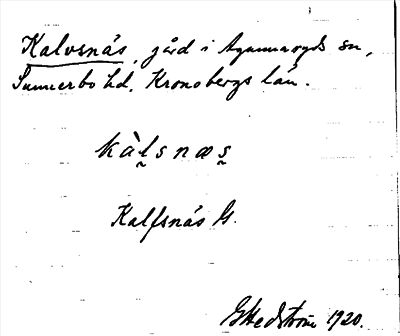 Kalvsnäs, gård i Agunnaryds sn,
Sunnerbo hd, Kronobergs län.
kàl̰snæs̰
Kalfsnäs G.
G Hedström 1920.